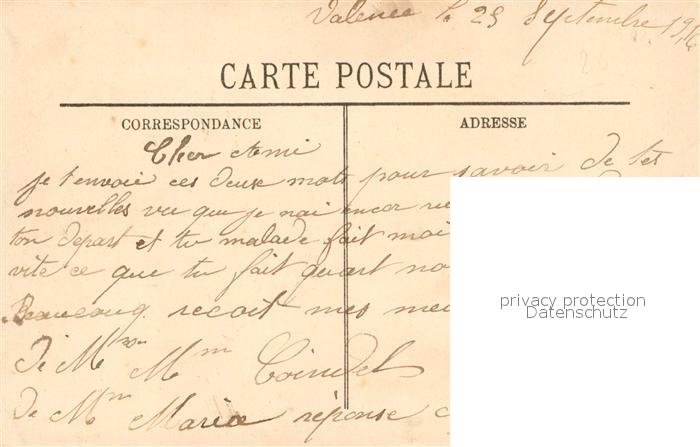 Valence le 25 Septembre 1916
CARTE POSTALE
CORRESPONDANCE
ADRESSE
Cher Ami
je t'envoie ces deux mots pour savoir de tes
nouvelles vu que je nai encor
ton depart et tu malade fait moi
vite ce que tu fait quart no
Beaucoug recoit mes
de M M Coindet
de Mm Maria réponse
privacy protection
Datenschutz